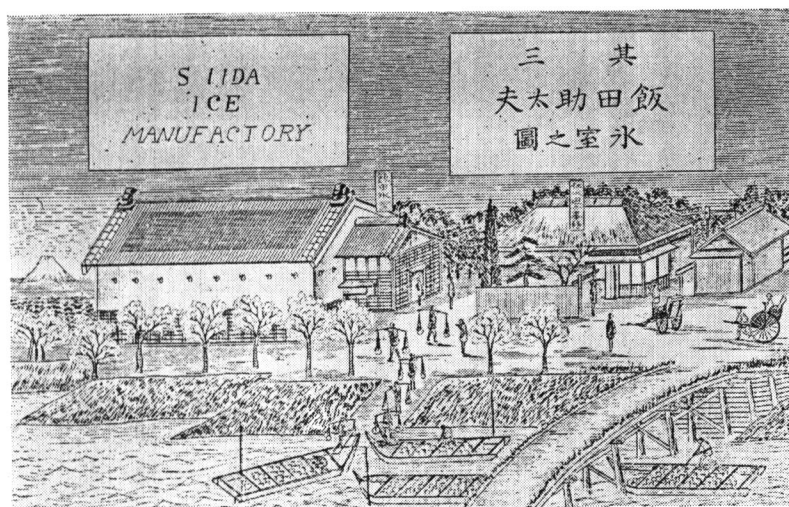 S IIDA
ICE
MANUFACTORY
其三
飯田助太夫
氷室之圖